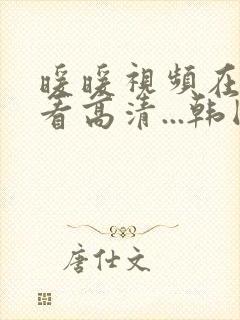 暖暖視頻在
看高清...韩
唐仕文